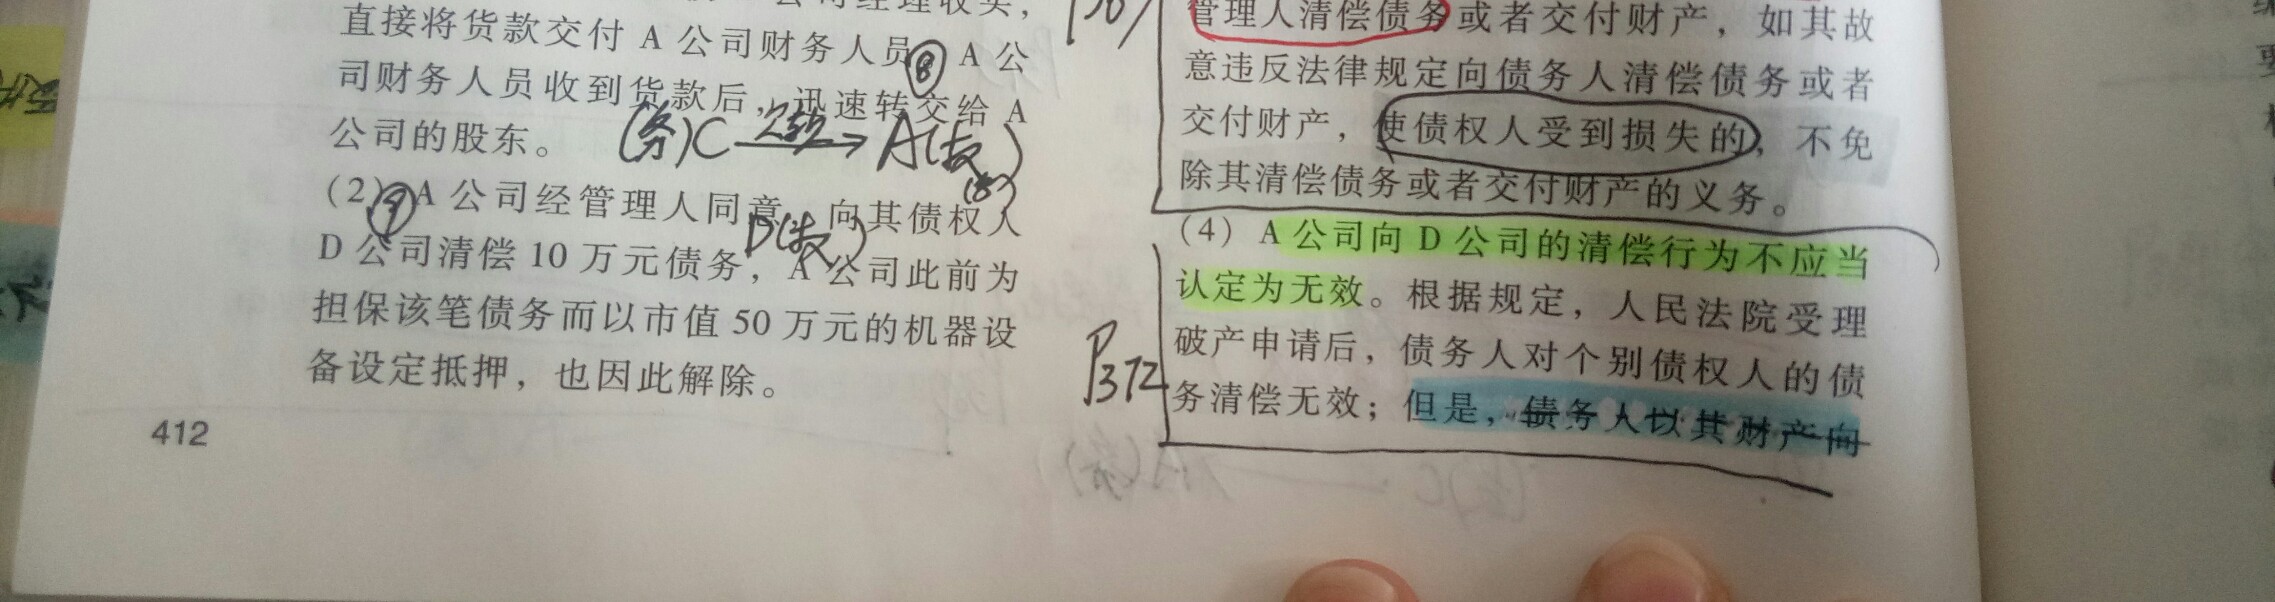 公司经理收买，
直接将货款交付 A 公司财务人员⑧ A 公
司财务人员收到货款后，迅速转交给 A
公司的股东。
(务)C 欠款→ A(权)
(债)
(2)⑨A 公司经管理人同意，向其债权人
D(权)
D 公司清偿 10 万元债务，A 公司此前为
担保该笔债务而以市值 50 万元的机器设
备设定抵押，也因此解除。
412
管理人清偿债务或者交付财产，如其故
意违反法律规定向债务人清偿债务或者
交付财产，使债权人受到损失的，不免
除其清偿债务或者交付财产的义务。
(4) A 公司向 D 公司的清偿行为不应当
认定为无效。根据规定，人民法院受理
破产申请后，债务人对个别债权人的债
务清偿无效；但是，债务人以其财产向
P372